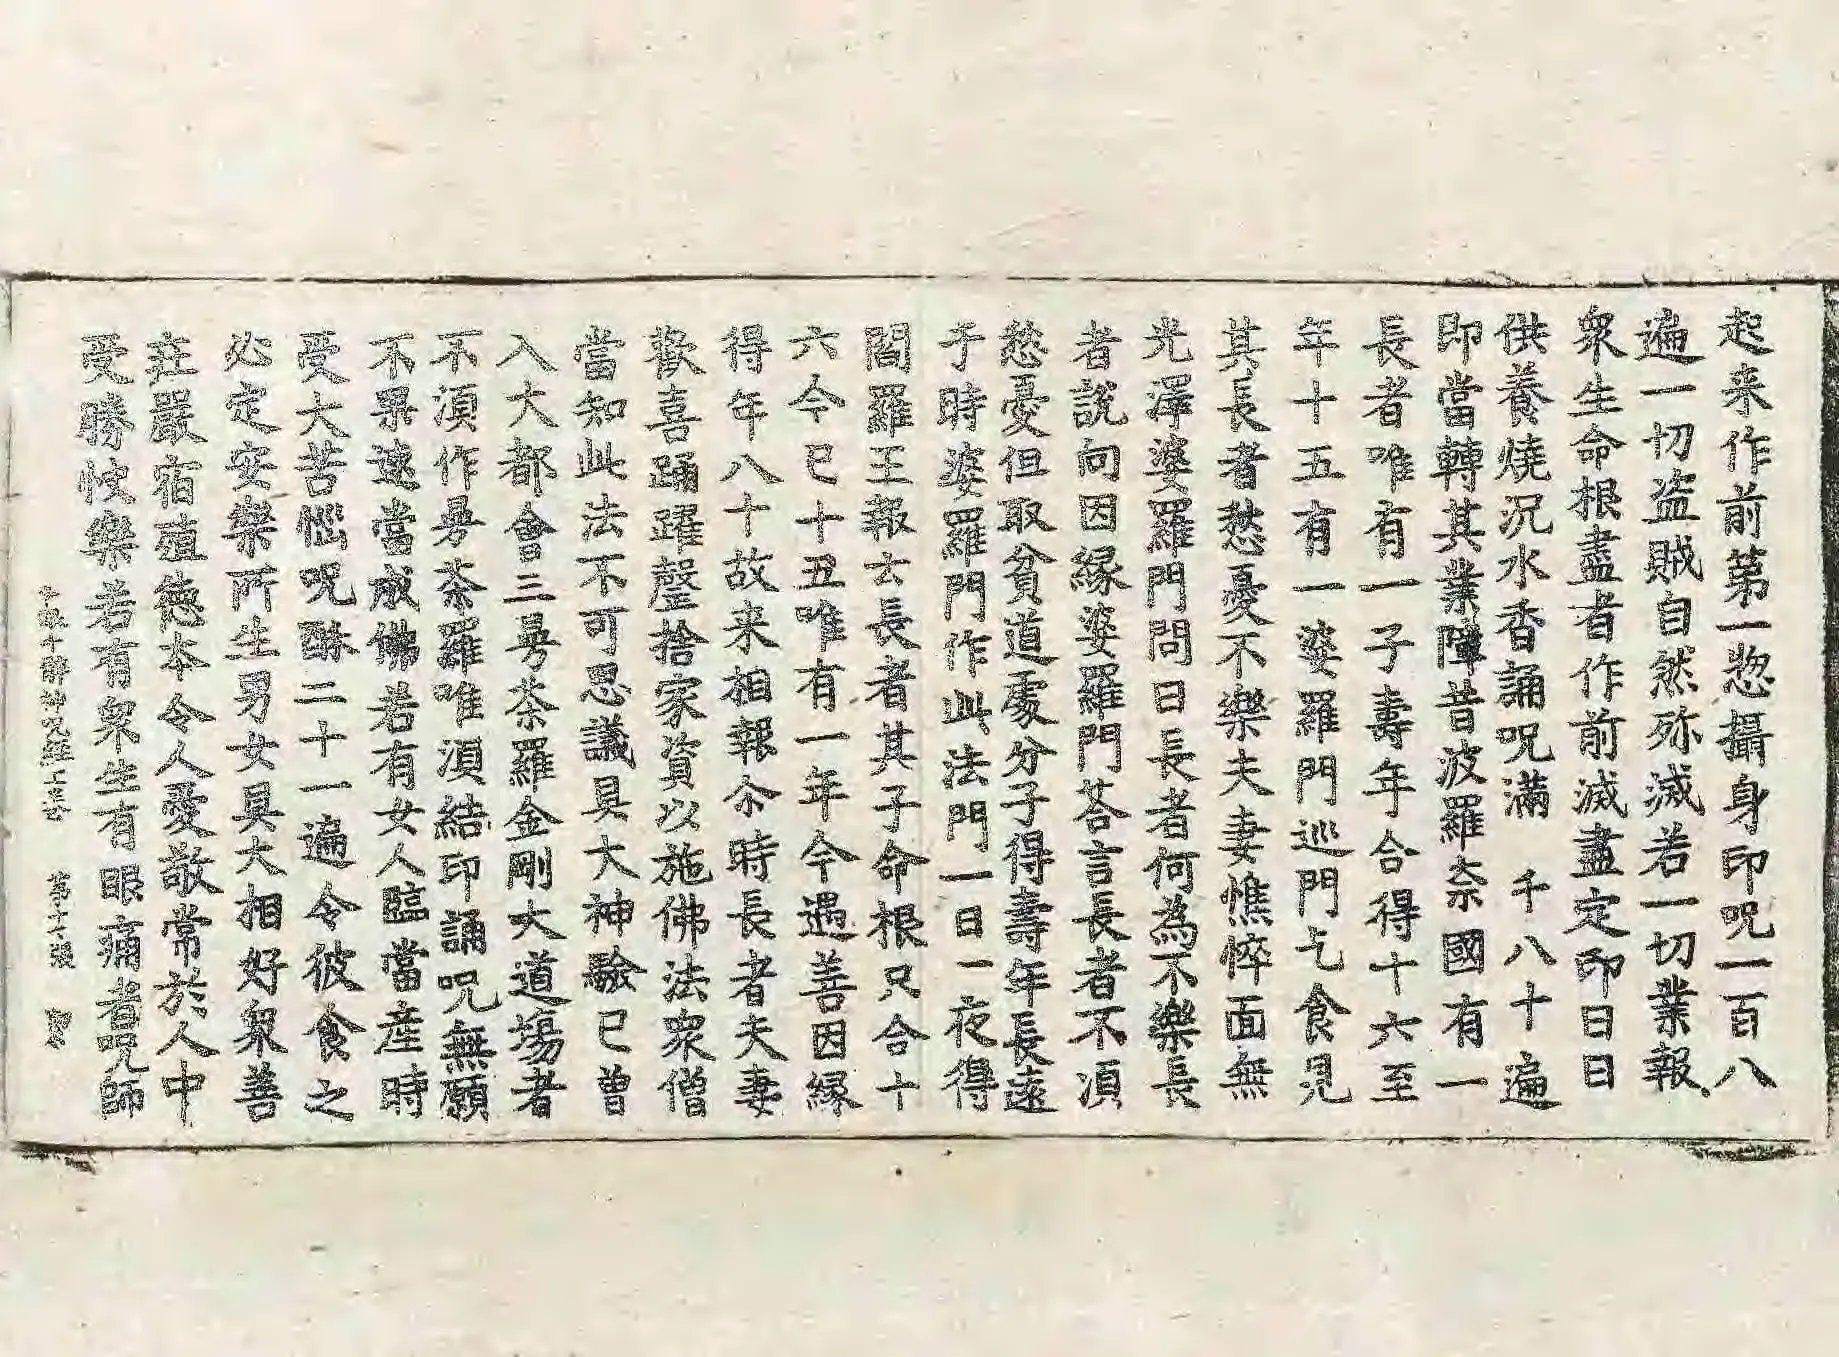 起来作前第一惣攝身印呪一百八
遍一切盗賊自然殄滅若一切業報
衆生命根盡者作前滅盡定印日日
供養燒沉水香誦呪滿 千八十遍
即當轉其業障昔波羅柰國有一
長者唯有一子壽年合得十六至
年十五有一婆羅門巡門乞食見
其長者愁憂不樂夫妻憔悴面無
光澤婆羅門問曰長者何為不樂長
者說向因緣婆羅門荅言長者不湏
愁憂但取貧道處分子得壽年長遠
于時婆羅門作此法門一日一夜得
閻羅王報云長者其子命根只合十
六今已十五唯有一年今遇善因緣
得年八十故来相報尒時長者夫妻
歡喜踊躍罄捨家資以施佛法衆僧
當知此法不可思議具大神驗已曾
入大都會三曼荼羅金剛大道場者
不湏作曼荼羅唯湏結印誦呪無願
不果速當成佛若有女人臨當産時
受大苦惱呪酥二十一遍令彼食之
必定安樂所生男女具大相好衆善
莊嚴宿殖德本令人愛敬常於人中
受勝快樂若有衆生有眼痛者呪師
千眼千臂神呪經上卷 第十六張